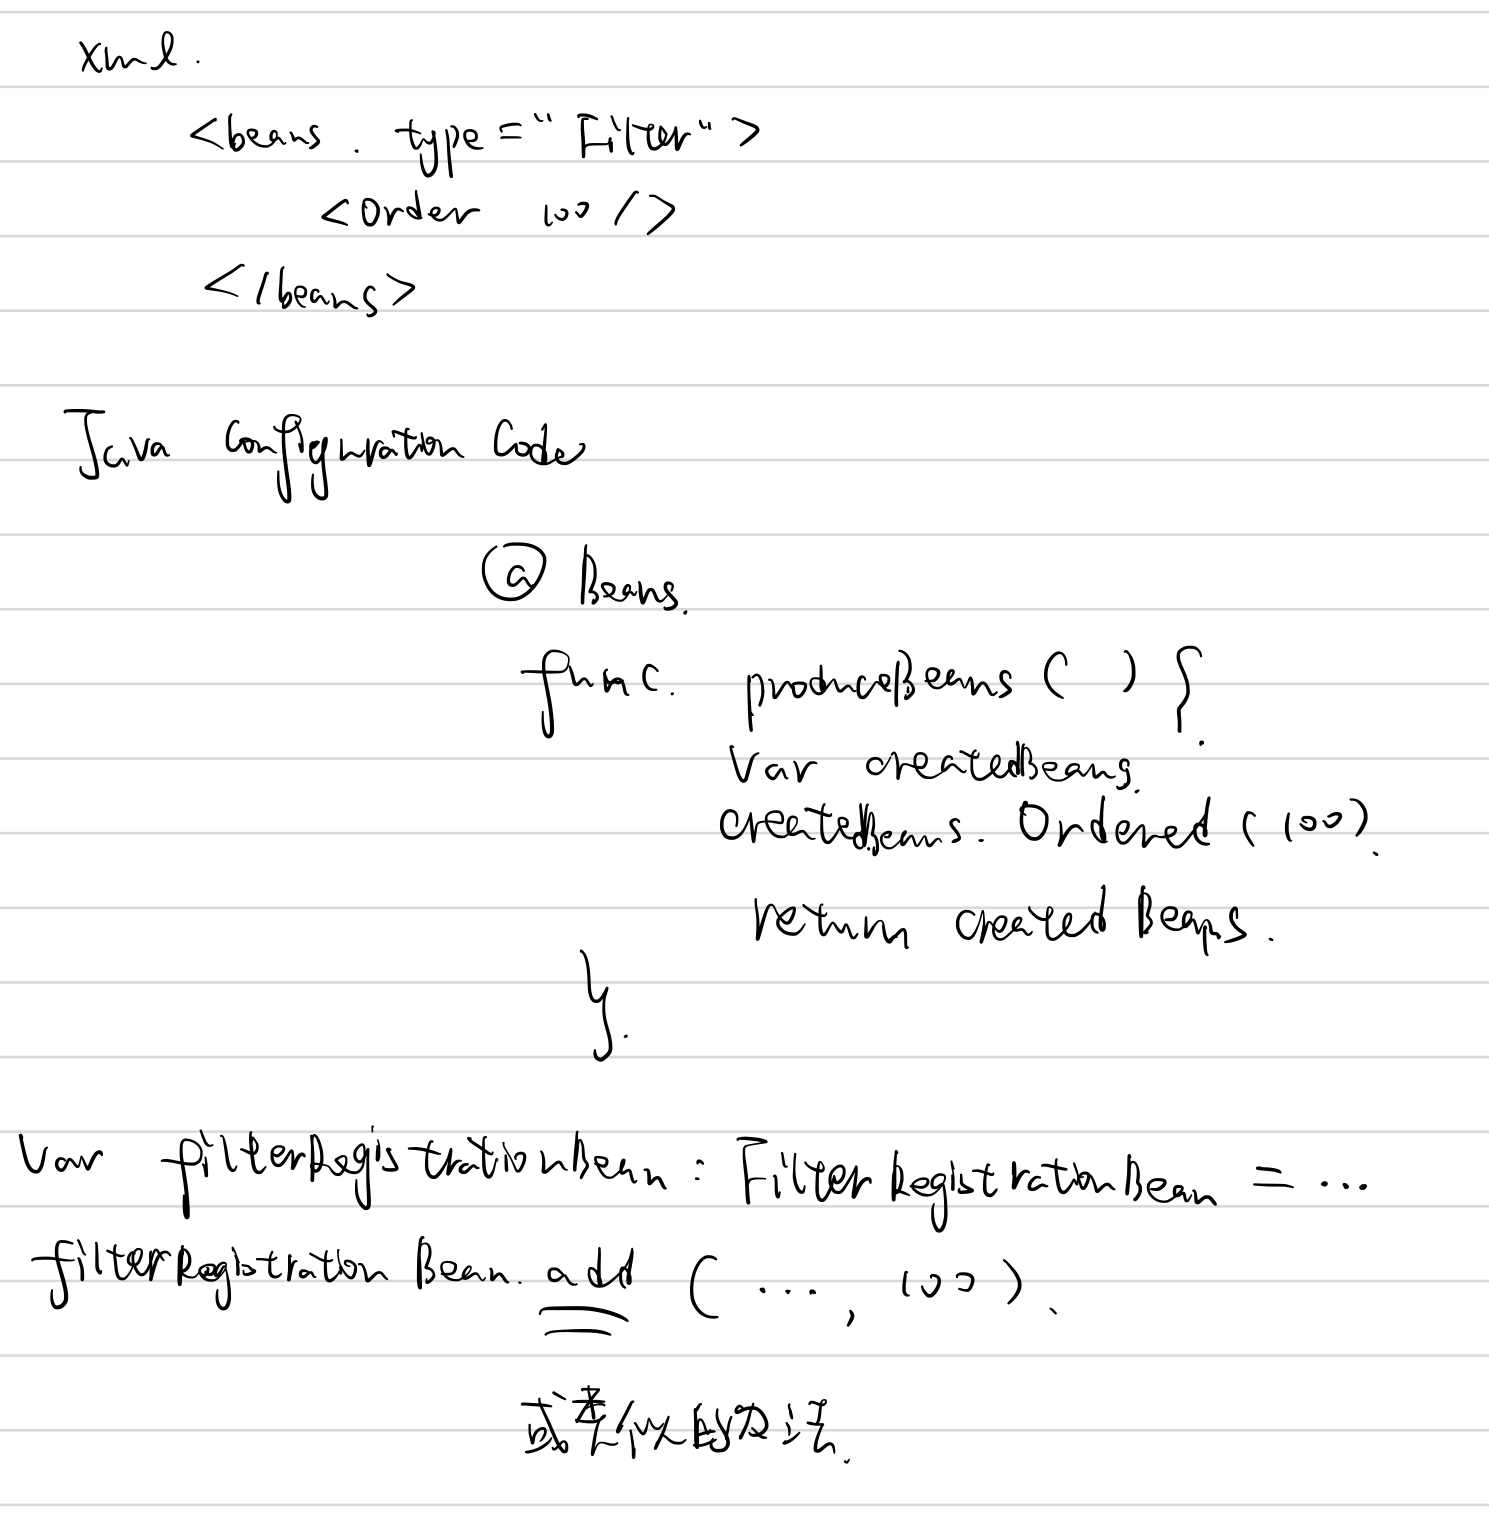 xml.
<beans. type="Filter">
<Order 100 />
</beans>
Java Configuration Code
@Beans.
func. produceBeans ( ) {
Var createdBeans.
createdBeans. Ordered (100).
return created Beans.
}.
Var filterRegistrationBean : FilterRegistrationBean = ...
filterRegistration Bean. add ( ..., 100 ).
或类似的方法.